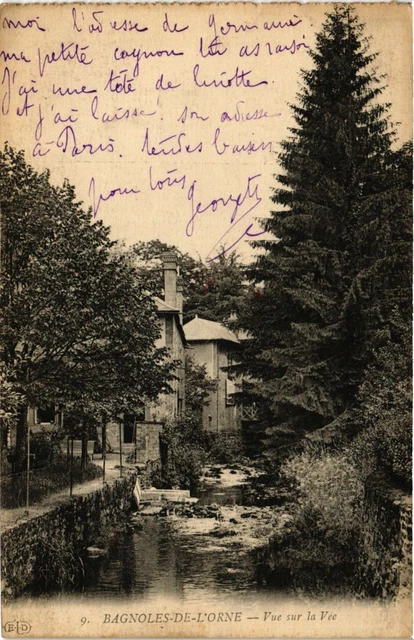 moi l'adresse de Germaine
ma petite cognon tu as raison
J'ai une tête de linotte
et j'ai laissé son adresse
à Paris. tendres baisers
pour tous
Georgette
9. BAGNOLES-DE-L'ORNE — Vue sur la Vée
ELD